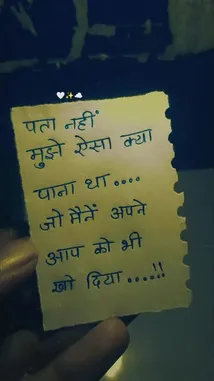 🤍✨☁️
पता नहीं
मुझे ऐसा क्या
पाना था ....
जो मैनें अपने
आप को भी
खो दिया .....!!